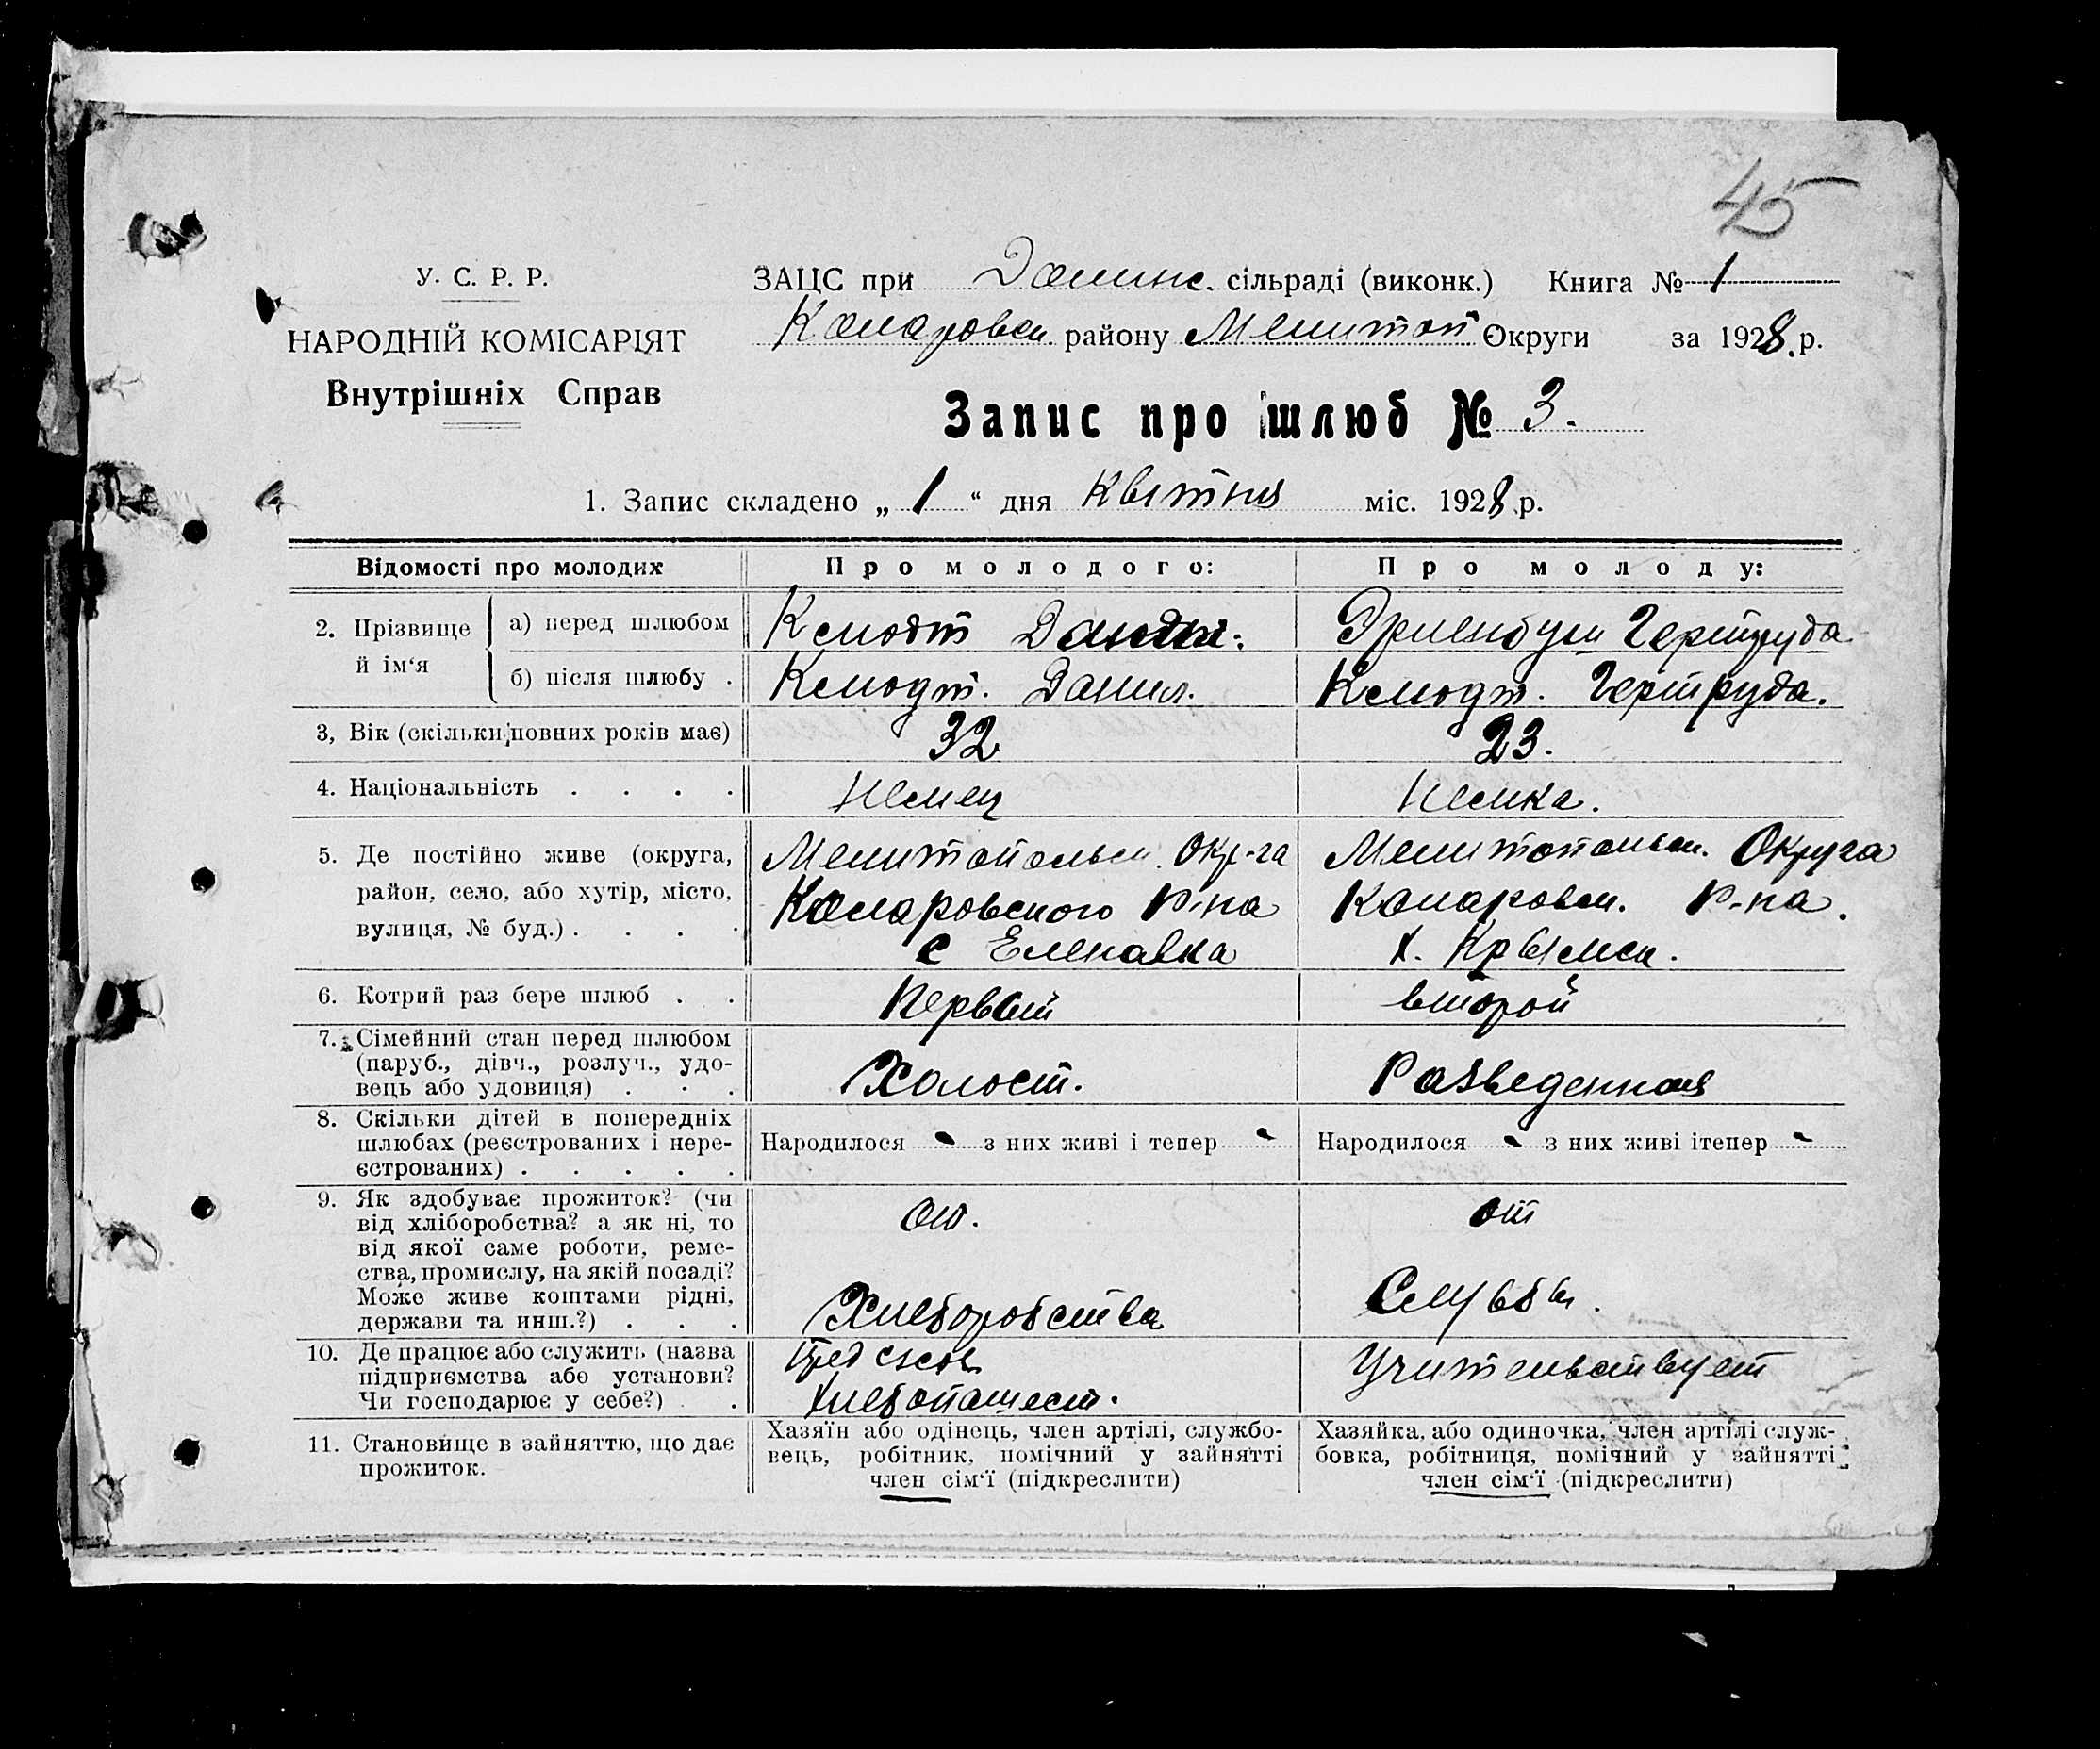 45
У. С. Р. Р.
НАРОДНІЙ КОМІСАРІЯТ
Внутрішніх Справ
ЗАЦС при Долинс. сільраді (виконк.) Книга № 1
району Мелитоп Округи за 1928 р.
Запис про шлюб № 3.
1. Запис складено „ 1 “ дня Квітня міс. 1928 р.
Відомості про молодих
Про молодого:
Про молоду:
2. Прізвище й ім‘я
а) перед шлюбом
Гертруда
б) після шлюбу .
Данил.
Гертруда.
3, Вік (скільки повних років має)
32
23.
4. Національність . . . .
Немец
Немка.
5. Де постійно живе (округа,
район, село, або хутір, місто,
вулиця, № буд.) . . . .
Мелитопольск. Окр-га
р-на
с Еленовка
Мелитопольск. Округа
р-на.
х. Крымск.
6. Котрий раз бере шлюб . .
Первый
второй
7. Сімейний стан перед шлюбом
(паруб., дівч., розлуч., удо-
вець або удовиця) . . .
Холост.
Разведенная
8. Скільки дітей в попередніх
шлюбах (реєстрованих і нере-
єстрованих) . . . . .
Народилося - з них живі і тепер -
Народилося - з них живі ітепер -
9. Як здобуває прожиток? (чи
від хліборобства? а як ні, то
від якої саме роботи, реме-
ства, промислу, на якій посаді?
Може живе коштами рідні,
держави та инш.?) . . .
от.
Хлеборобства
от
Службы.
10. Де працює або служить (назва
підприємства або установи?
Чи господарює у себе?) .
Хлебопашест.
Учительствует
11. Становище в зайняттю, що дає
прожиток.
Хазяїн або одінець, член артілі, службо-
вець, робітник, помічний у зайнятті
член сім‘ї (підкреслити)
Хазяйка, або одиночка, член артілі служ-
бовка, робітниця, помічний у зайнятті
член сім‘ї (підкреслити)